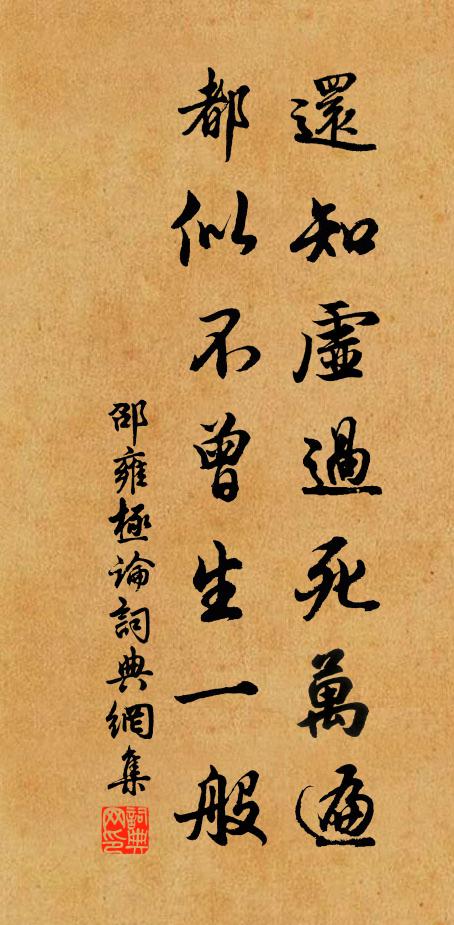 還知虛過死萬遍
都似不曾生一般
邵雍極論詞典網集
詞典网印